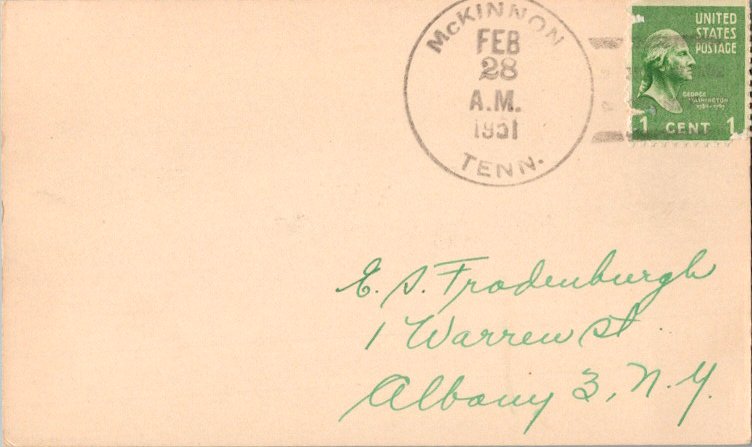 McKINNON
FEB
28
A.M.
1951
TENN.
UNITED
STATES
POSTAGE
GEORGE
WASHINGTON
1 CENT 1
E. S. Fradenburgh
1 Warren St
Albany 3, N.Y.